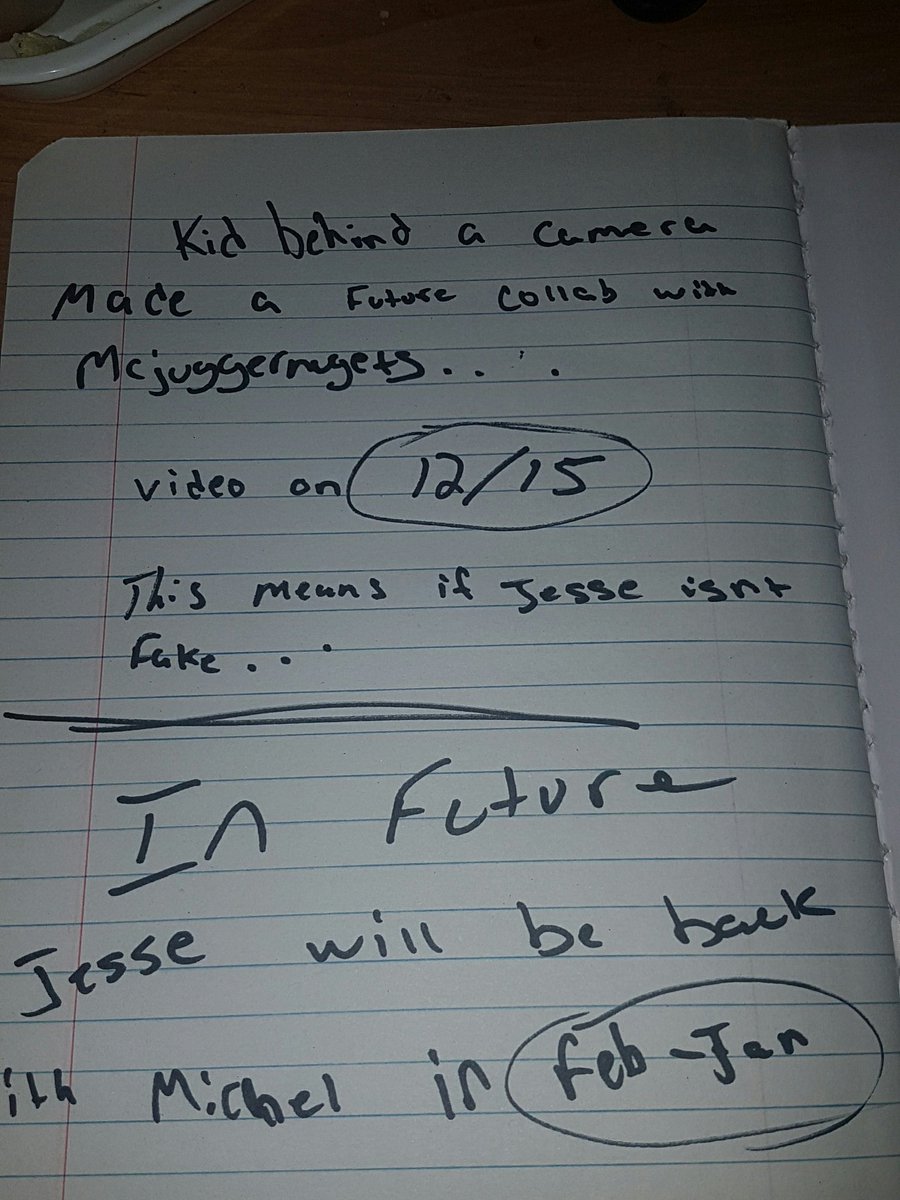 Kid behind a camera
Made a Future collab with
Mcjuggernugets....
video on 12/15
This means if Jesse isnt
Fake...
In Future
Jesse will be back
ith Michel in Feb-Jan